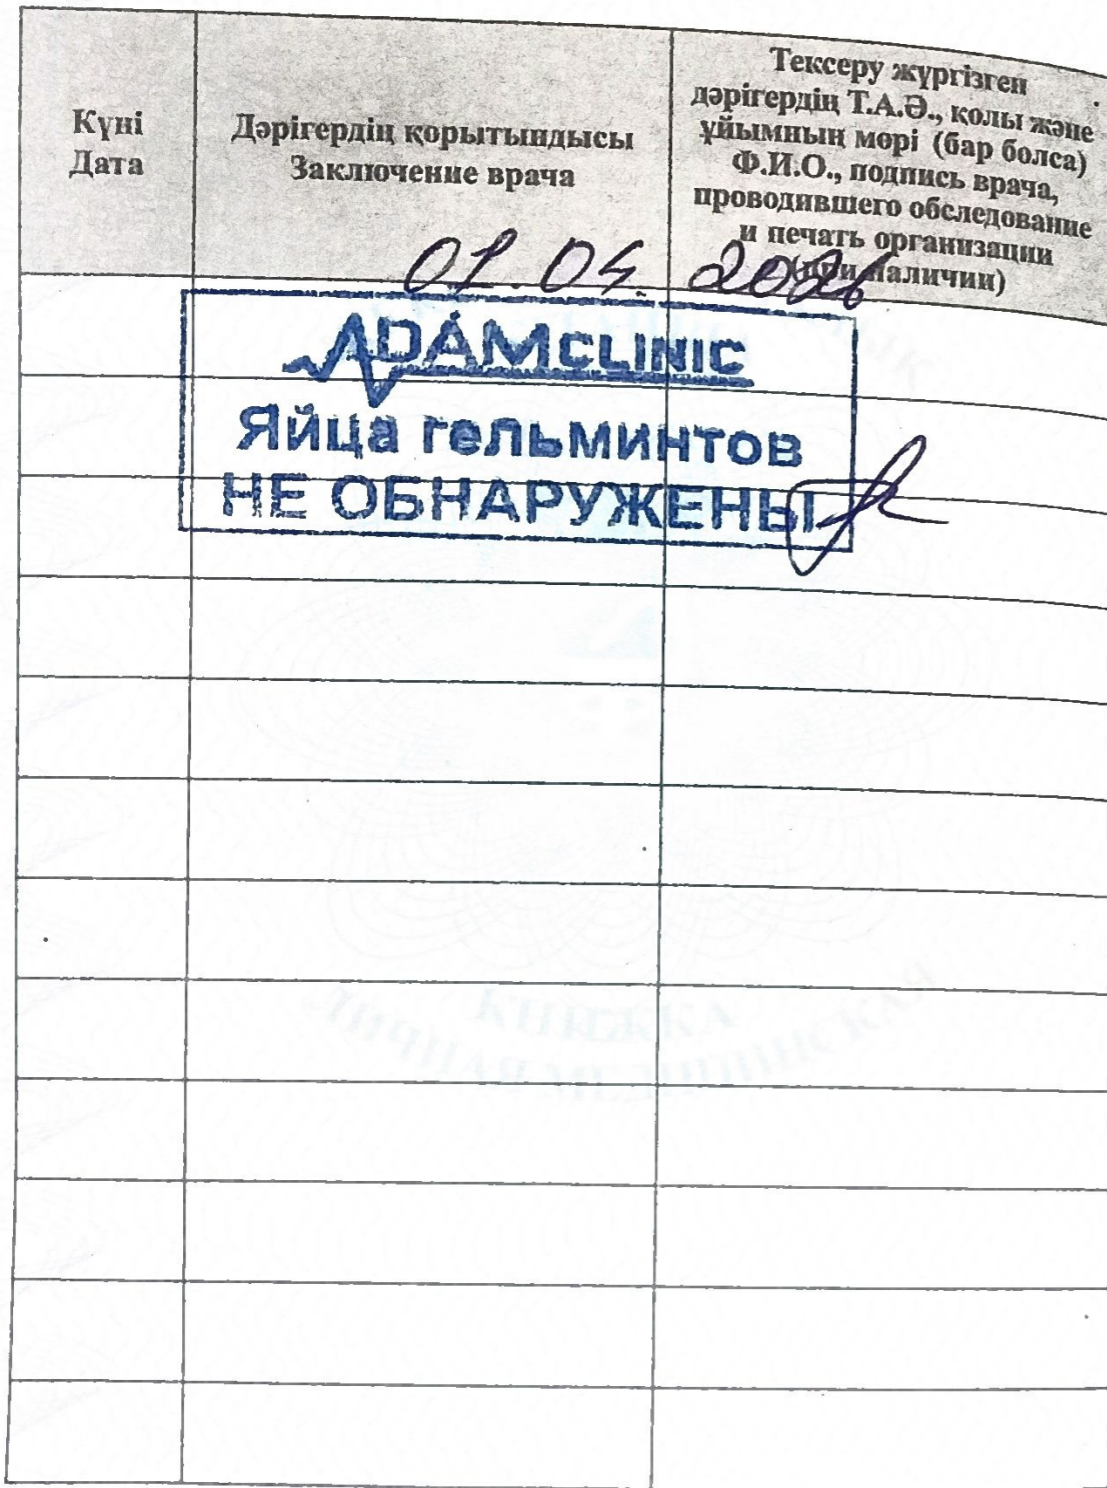 Күні
Дата
Дәрігердің қорытындысы
Заключение врача
Тексеру жүргізген
дәрігердің Т.А.Ә., қолы және
ұйымның мөрі (бар болса)
Ф.И.О., подпись врача,
проводившего обследование
и печать организации
(при наличии)
01.04.2026
ADAMCLINIC
Яйца гельминтов
НЕ ОБНАРУЖЕНЫ
КНИЖКА
ЛИЧНАЯ МЕДИЦИНСКАЯ